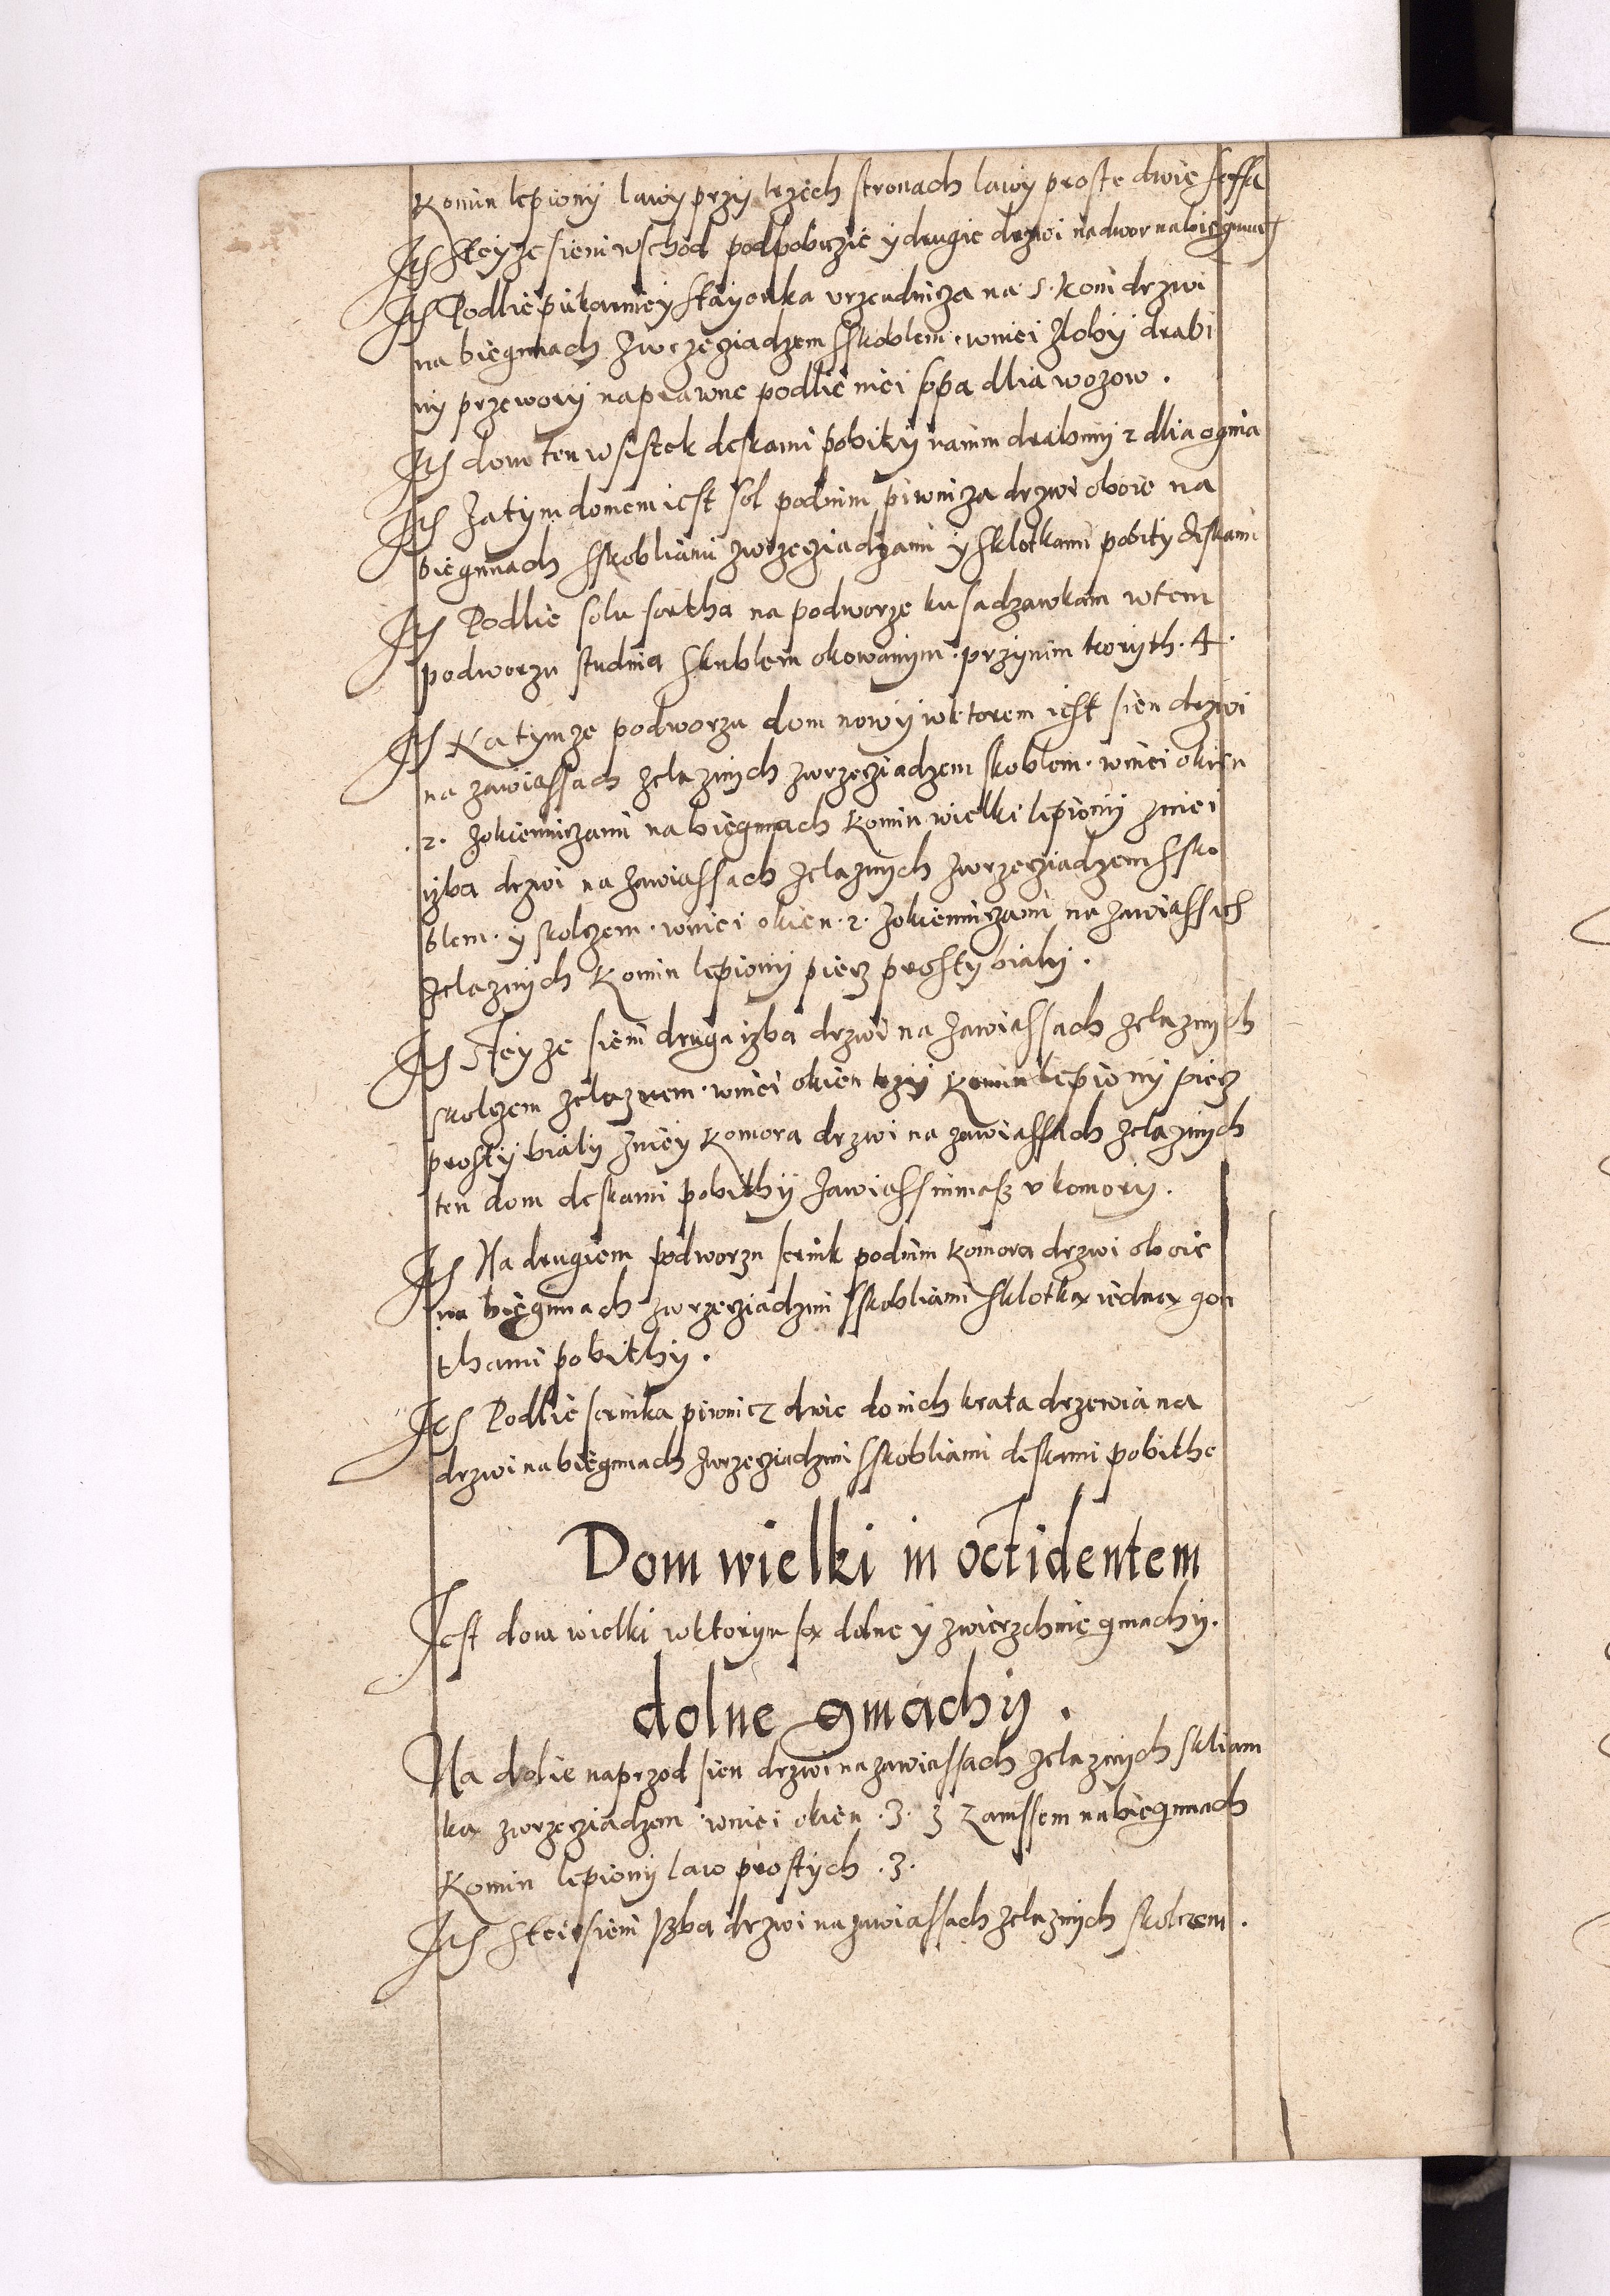 Komin lepiony lawy przy trzech stronach lawy proste dwie
Its steyze sieni wschod podpobrzie y drugie drzwi nadwor nabiegunach
Its Podlie piekarniey stayenka urzendnicza na 5. koni drzwi
na biegunach zwrzecziadzem sskoblem. wniei zloby drabi
ny przewory naprawne podlie niei sopa dlia wozow.
Its dom ten wsistek deskami pobity nanim drabiny 2 dlia ognia
Its Zatym domem iest sol podnim piwnicza drzwi oboie na
biegunach sskobliami zwrzecziadzami y sklotkami pobity deskami
Its Podlie solu fortha na podworze ku sadzawkam wtem
podworzu studnia skublem okowanym. przynim koryth. 4.
Its Natymze podworzu dom nowy wktorem iest sien drzwi
na zawiassach zelaznych zwrzecziadzem skoblem. wniei okien
.2. zokienniczami na biegunach Komin wielki lepiony zniei
izba drzwi na zawiassach zelaznych zwrzecziadzem ssko
blem. y skolczem. wniei okien .2. zokienniczami na zawiassach
zelaznych Komin lepiony piecz prosty bialy.
Its steyze sieni druga izba drzwi na zawiassach zelaznych
skolczem zelaznem. wniei okien trzy Komin lepiony piecz
prosty bialy zniey Komora drzwi na zawiassach zelaznych
ten dom deskami pobithy zawiass niemasz u komory.
Its Na drugiem podworzu sernik podnim Komora drzwi oboie
na biegunach zwrzecziadzmi sskobliami sklotka iedna gon
thami pobithy.
Its Podlie sernika piwnicz dwie do nich krata drzewiana
drzwi na biegunach zwrzecziadzmi sskobliami deskami pobithe
Dom wielki in octidentem
Jest dom wielki wktorym sa dolne y zwierzchnie gmachy.
dolne gmachy.
Na dolie naprzod sien drzwi na zawiassach zelaznych skliam
ka zwrzecziadzem. wniei okien .3. z zamssem na biegunach
Komin lepiony law prostych .3.
Its steisieni Iszba drzwi na zawiassach zelaznych skolczem.